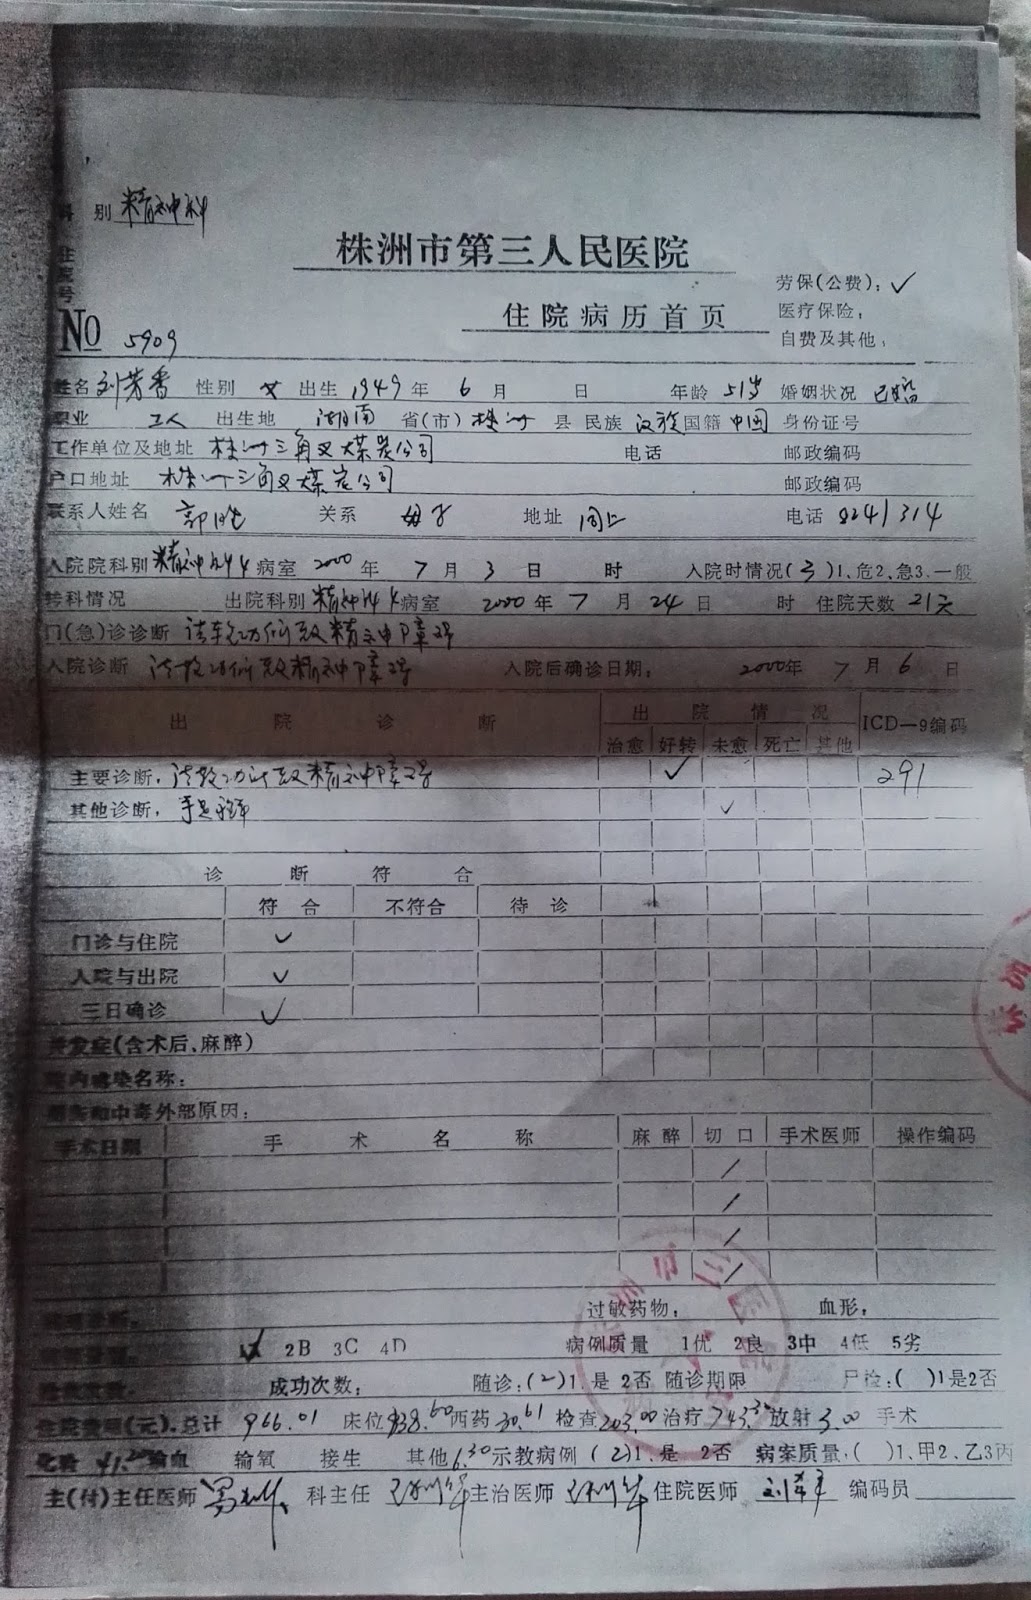 科别 精神科
株洲市第三人民医院
劳保(公费): ✓
住院号
住院病历首页
医疗保险:
自费及其他:
No 5909
姓名 刘芳香 性别 女 出生 1949年 6月 日 年龄 51岁 婚姻状况 已婚
职业 工人 出生地 湖南 省(市) 株洲 县 民族 汉族 国籍 中国 身份证号
工作单位及地址 株洲三角叉煤炭公司 电话 邮政编码
户口地址 株洲三角叉煤炭公司 邮政编码
联系人姓名 郭 关系 母子 地址 同上 电话 8241314
入院院科别 精神科4病室 2000年 7月 3日 时 入院时情况(3)1、危2、急3.一般
转科情况 出院科别 精神科4病室 2000年 7月 24日 时 住院天数 21天
门(急)诊诊断 法轮功所致精神障碍
入院诊断 法轮功所致精神障碍 入院后确诊日期: 2000年 7月 6日
出院诊断 出院情况 ICD—9编码
治愈 好转 未愈 死亡 其他
主要诊断, 法轮功所致精神障碍 ✓ 291
其他诊断, 手足 ✓
诊断符合
符合 不符合 待诊
门诊与住院 ✓
入院与出院 ✓
三日确诊 ✓
并发症(含术后、麻醉)
院内感染名称:
损伤和中毒外部原因:
手术日期 手术名称 麻醉 切口 手术医师 操作编码
/
/
/
/
过敏药物: 血形:
2B 3C 4D 病例质量 1优 2良 3中 4低 5劣
成功次数: 随诊:(2)1.是 2否 随诊期限 尸检:( )1是2否
住院费用(元).总计 966.01 床位 西药 30.61 检查 203.00 治疗 放射 3.00 手术
化验 输血 输氧 接生 其他 6.30 示教病例 (2)1.是 2否 病案质量:( )1、甲2、乙3丙
主(付)主任医师 科主任 主治医师 住院医师 编码员